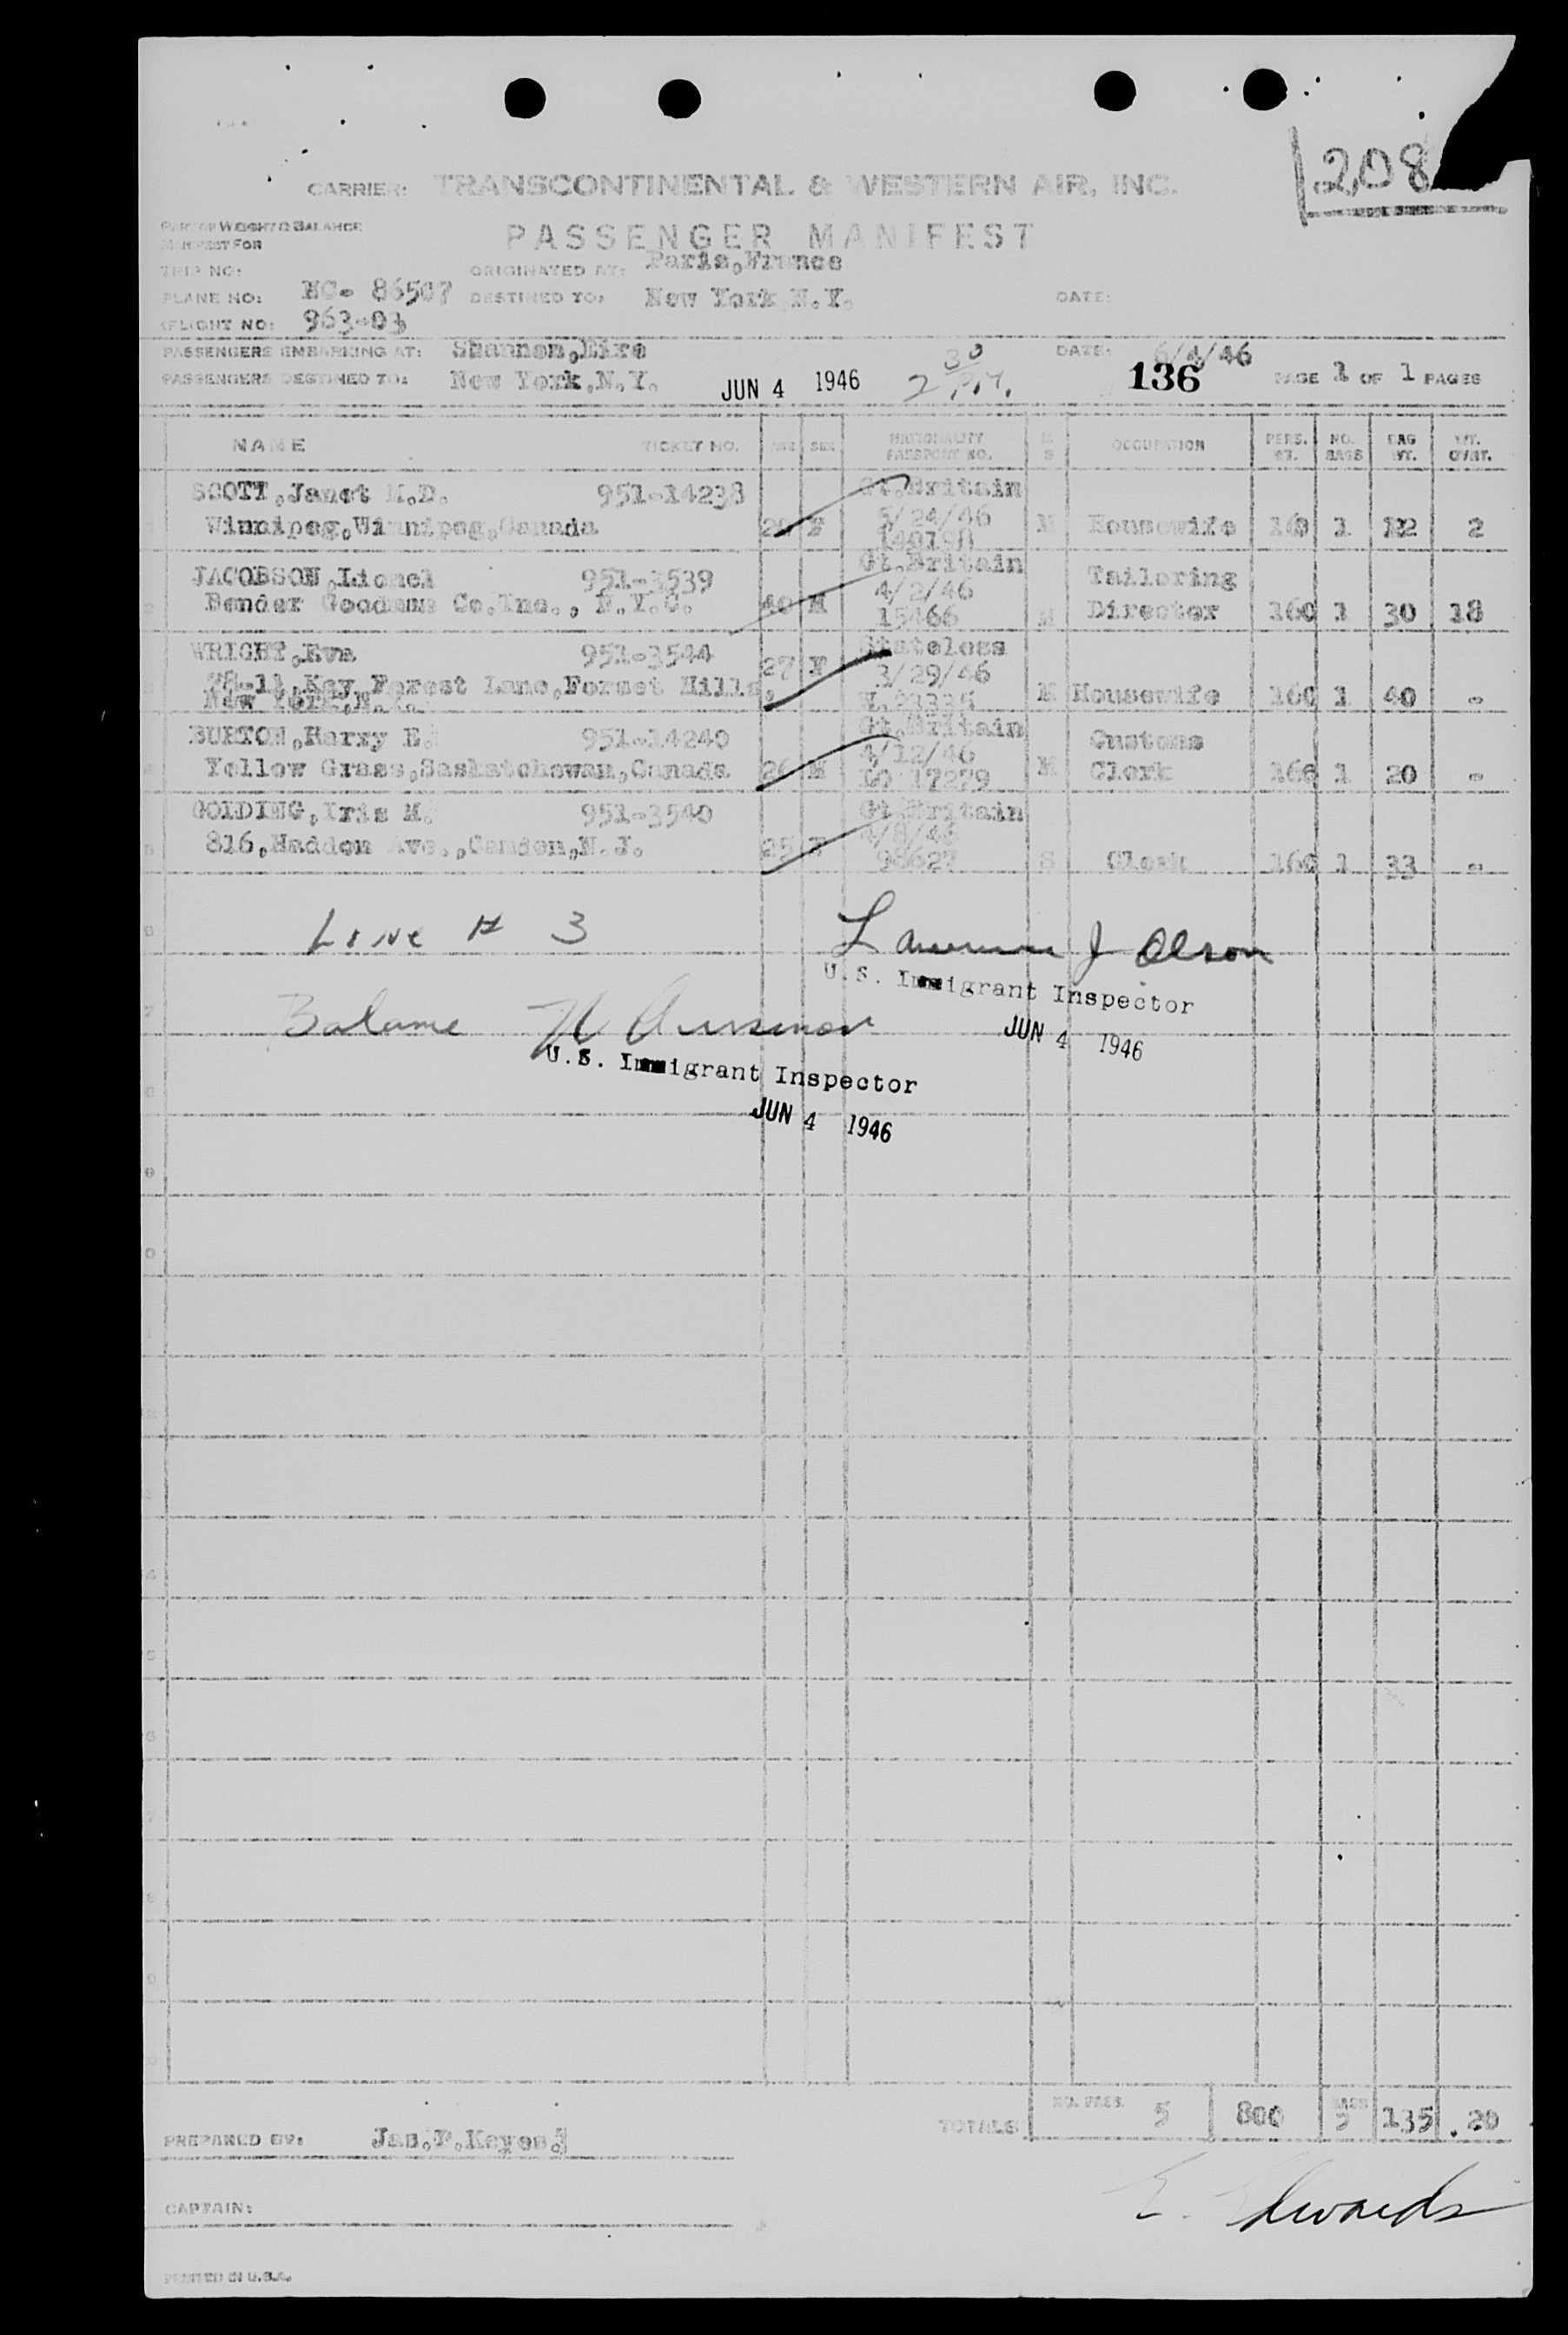 208
CARRIER: TRANSCONTINENTAL & WESTERN AIR, INC.
PART OF WEIGHT & BALANCE
MANIFEST FOR
PASSENGER MANIFEST
TRIP NO:
ORIGINATED AT: Paris,France
PLANE NO: NC- 86507 DESTINED TO: New York N.Y. DATE:
FLIGHT NO: 963-03
PASSENGERS EMBARKING AT: Shannon,Eire DATE: 6/4/46
PASSENGERS DESTINED TO: New York,N.Y. JUN 4 1946 2 30 P.M. 136 PAGE 1 OF 1 PAGES
NAME TICKET NO. AGE SEX NATIONALITY PASSPORT NO. M S OCCUPATION PERS. WT. NO. BAGS BAG WT. WT. OVRT.
SCOTT,Janet M.D. 951-14238 Gt.Britain
Winnipeg,Winnipeg,Canada F 5/24/46 M Housewife 160 1 12 2
JACOBSON,Lionel 951-3539 Gt.Britain Tailoring
Bender Goodman Co.Inc., N.Y.C. 40 M 4/2/46
15466 M Director 160 1 30 18
WRIGHT,Eva 951-3544 27 F Stateless
Kay,Forest Lane,Forset Hills, 3/29/46
New York,N.Y. M Housewife 160 1 40 -
BURTON,Harry E. 951-14240 Gt.Britain Customs
Yellow Grass,Saskatchewan,Canada 26 M 4/12/46 M Clerk 160 1 20 -
17279
GOLDING,Iris M. 951-3540 Gt.Britain
816,Haddon Ave.,Camden,N.J. 25 F 4/8/46
98627 S Clerk 160 1 33 -
Line # 3 Lawrence J Olson
U.S. Immigrant Inspector
JUN 4 1946
Balance
U.S. Immigrant Inspector
JUN 4 1946
TOTALS NO. PASS. 5 800 BAGS 135 20
PREPARED BY: Jas.F.Keyes.
CAPTAIN:
E. Edwards
PRINTED IN U.S.A.